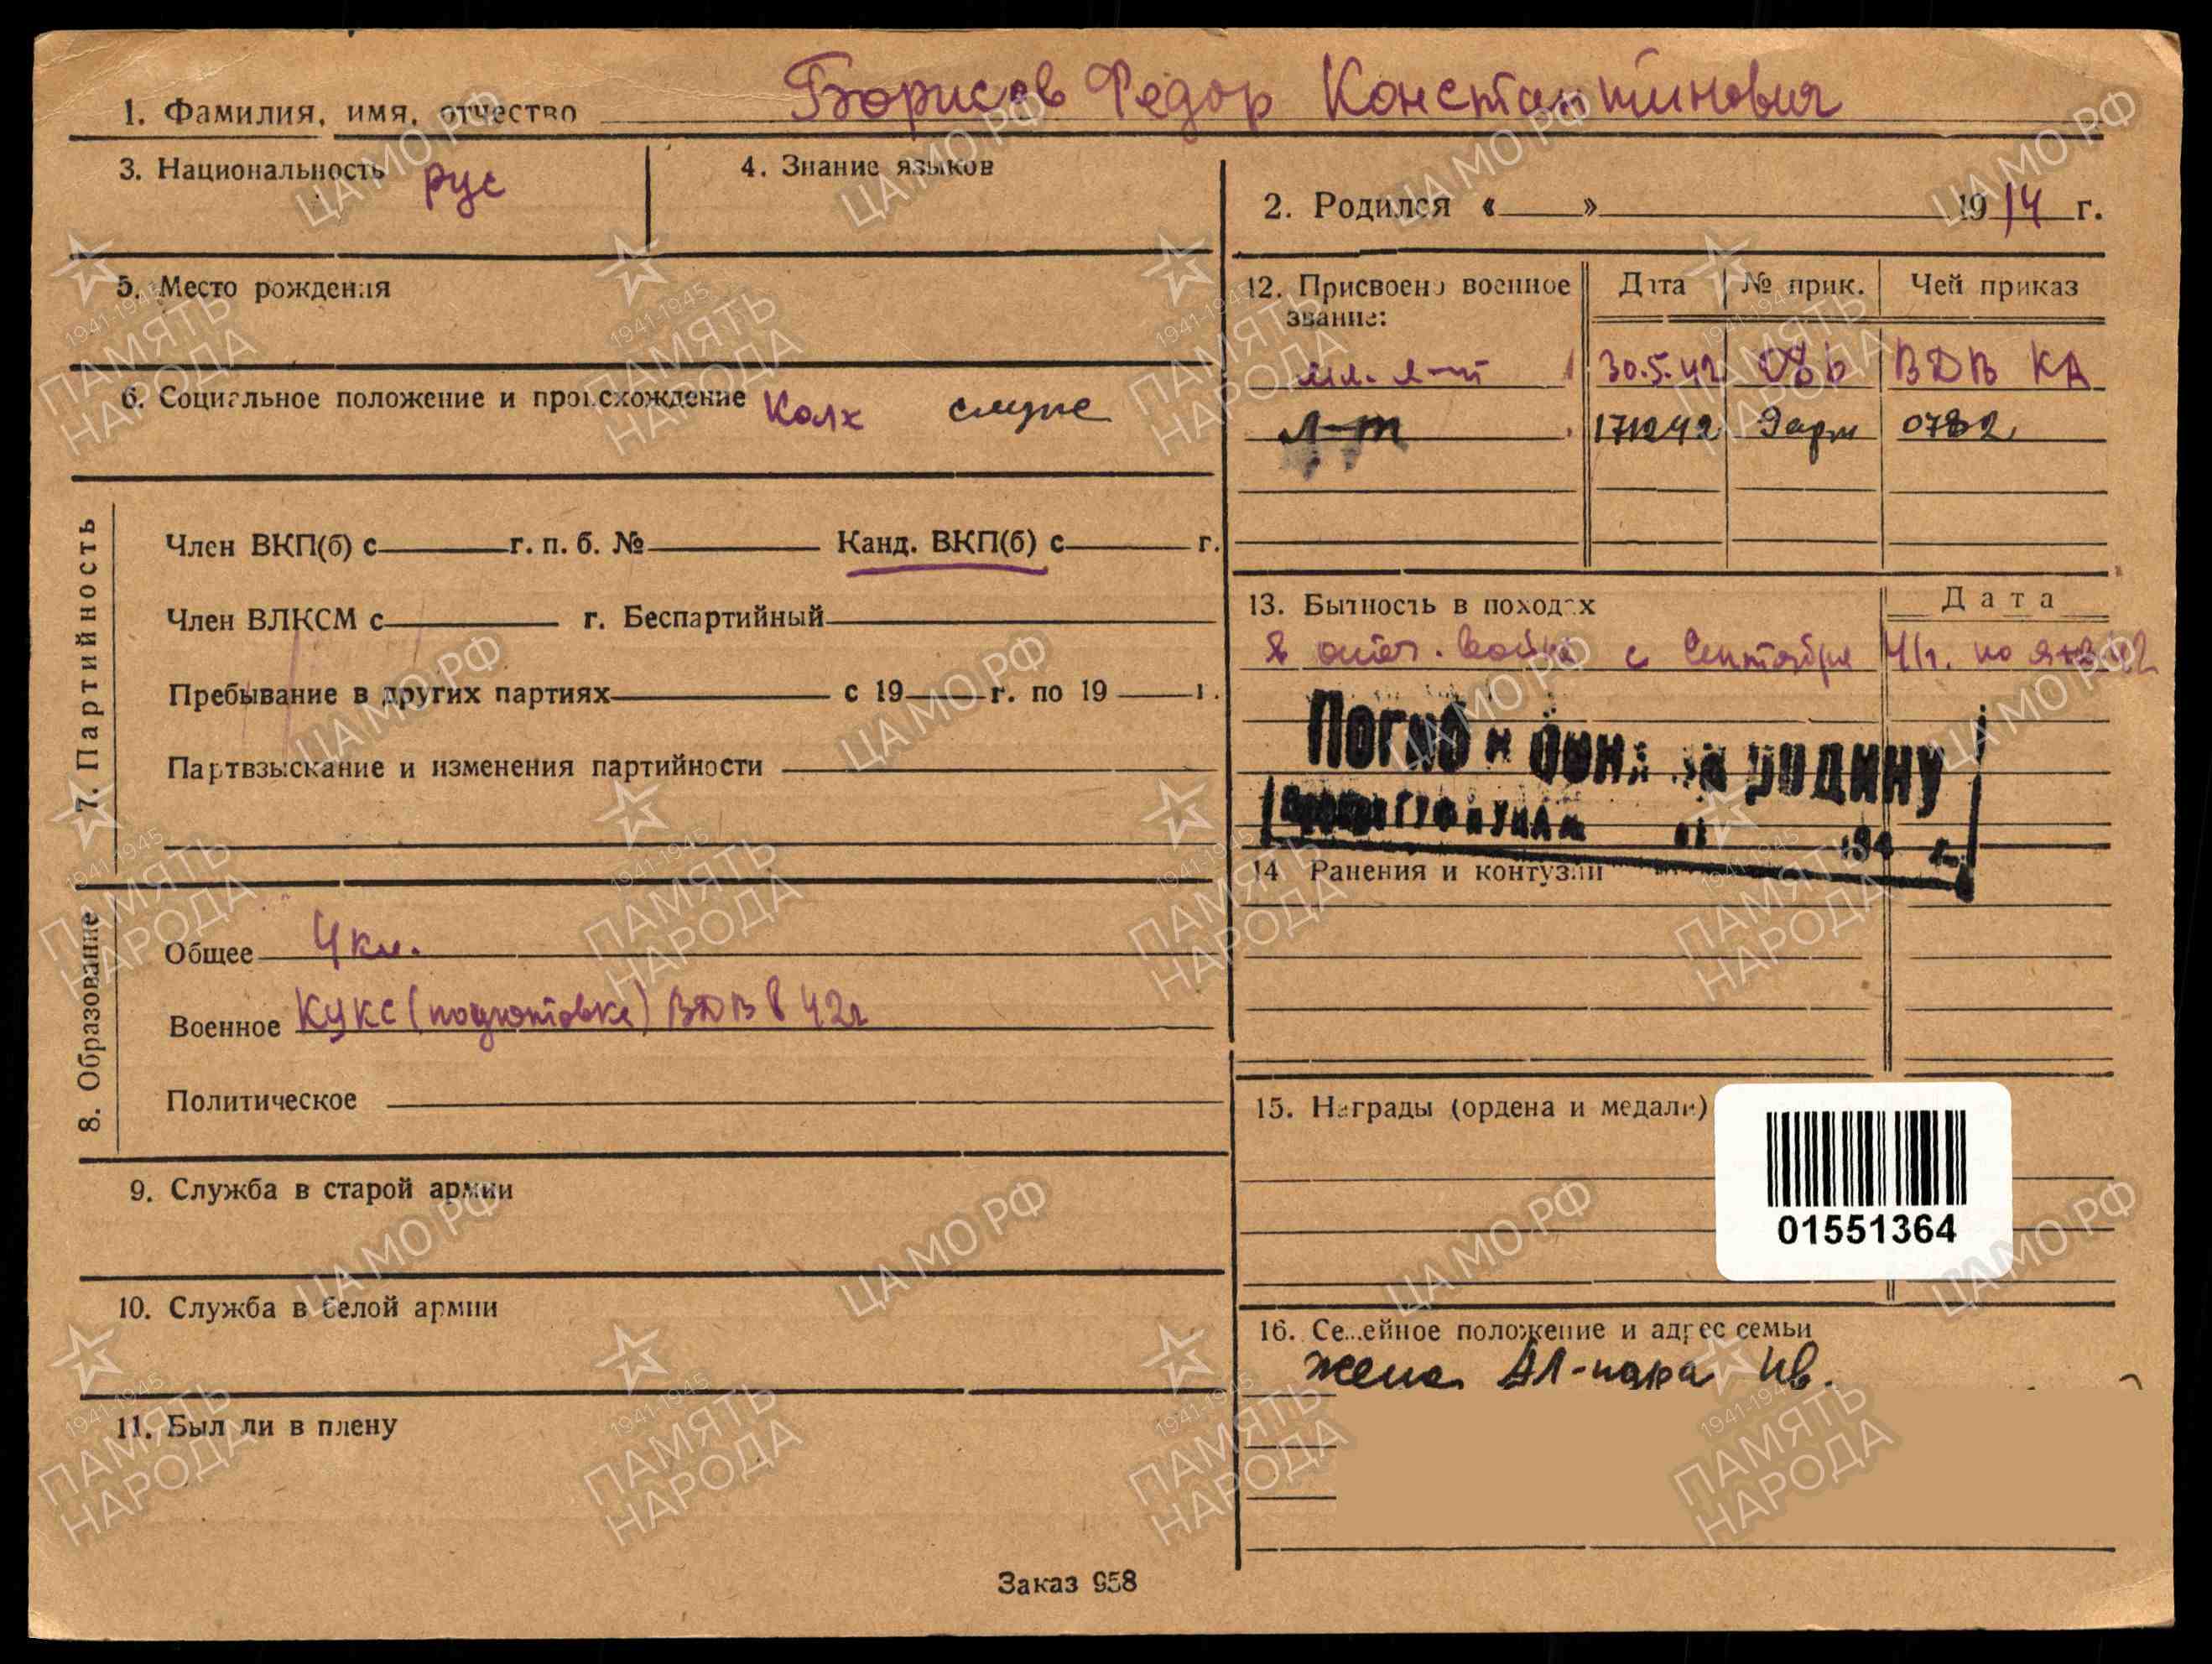 1. Фамилия, имя, отчество Борисов Федор Константинович
3. Национальность рус
4. Знание языков
2. Родился « » 1914 г.
5. Место рождения
6. Социальное положение и происхождение Колх служ
12. Присвоено военное звание: Дата № прик. Чей приказ
мл. л-т 30.5.42 ВДВ КА
л-т 171242 9арм 0782
7. Партийность
Член ВКП(б) с г. п. б. № Канд. ВКП(б) с г.
Член ВЛКСМ с г. Беспартийный
Пребывание в других партиях с 19 г. по 19 г.
Партвзыскание и изменения партийности
13. Бытность в походах Дата
В отеч. войне с Сентября 41г. по янв 42
Погиб в боях за родину
194 г.
14 Ранения и контузии
8. Образование
Общее 4 кл.
Военное КУКС (подготовке) ВДВ в 42г
Политическое
15. Награды (ордена и медали)
01551364
9. Служба в старой армии
10. Служба в белой армии
11. Был ли в плену
16. Семейное положение и адрес семьи
жена Ал-ндра Ив.
Заказ 958
ЦАМО.РФ
1941-1945
ПАМЯТЬ
НАРОДА